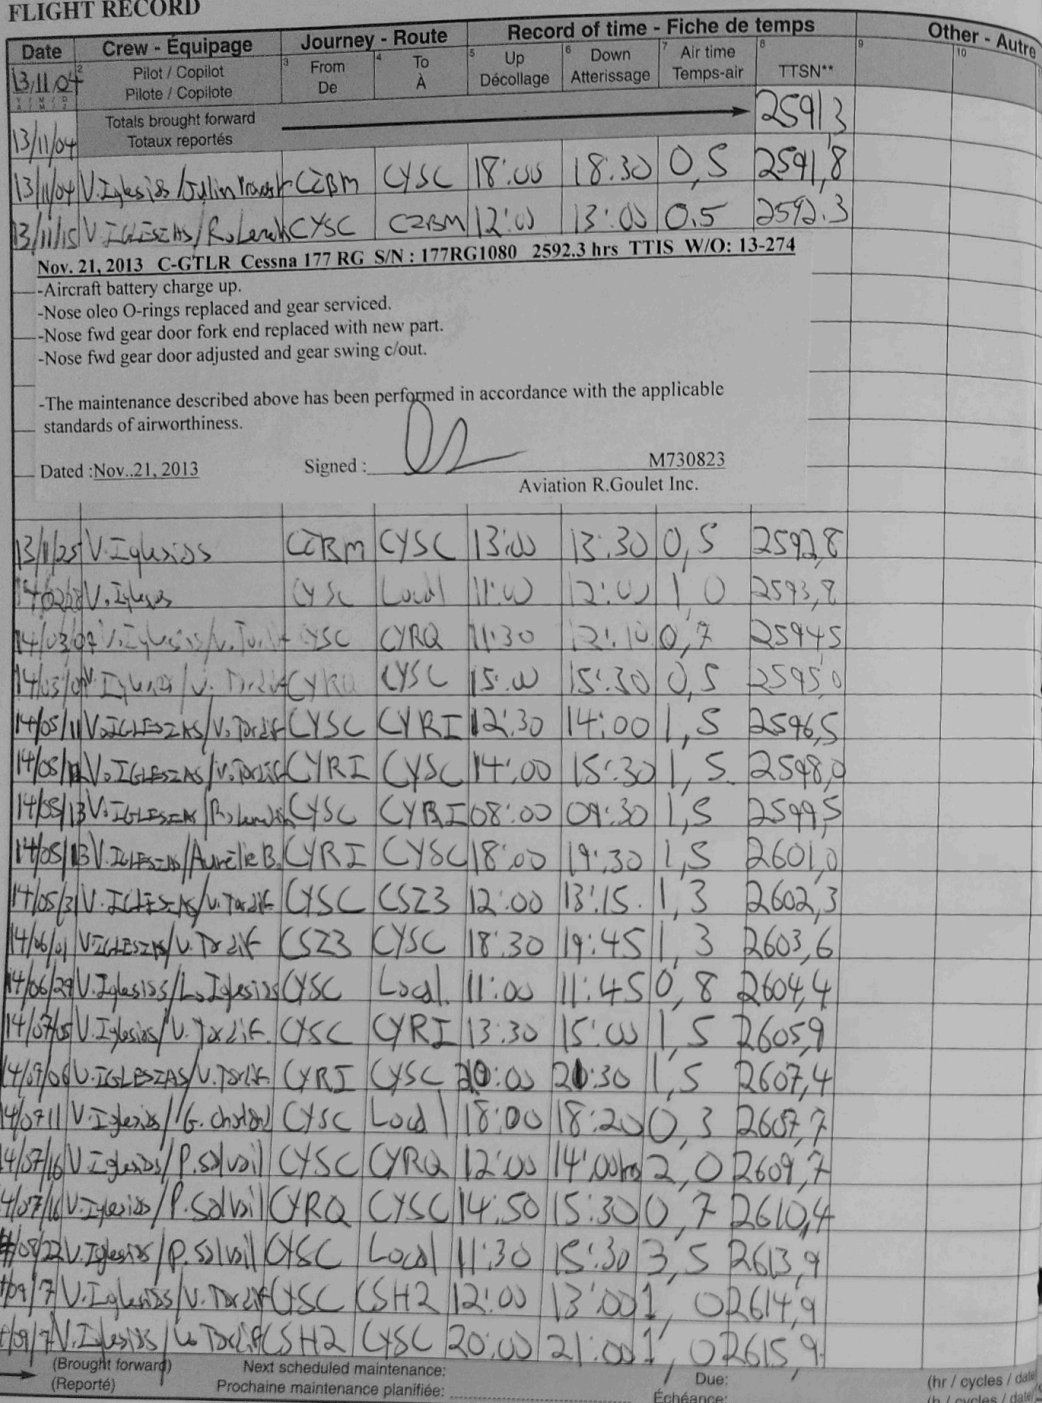 FLIGHT RECORD
Date Crew - Équipage Journey - Route Record of time - Fiche de temps Other - Autre
13/11/04 2 Pilot / Copilot Pilote / Copilote 3 From De 4 To À 5 Up Décollage 6 Down Atterissage 7 Air time Temps-air 8 TTSN** 9 10
13/11/04 Totals brought forward Totaux reportés 2591,3
13/11/04 V. Iglesias / CZBM CYSC 18:00 18:30 0,5 2591,8
13/11/15 V. IGLESIAS / CYSC CZBM 12:00 13:00 0.5 2592.3
Nov. 21, 2013 C-GTLR Cessna 177 RG S/N : 177RG1080 2592.3 hrs TTIS W/O: 13-274
-Aircraft battery charge up.
-Nose oleo O-rings replaced and gear serviced.
-Nose fwd gear door fork end replaced with new part.
-Nose fwd gear door adjusted and gear swing c/out.
-The maintenance described above has been performed in accordance with the applicable
standards of airworthiness.
Dated :Nov..21, 2013 Signed : M730823
Aviation R.Goulet Inc.
13/11/25 V. Iglesias CZBM CYSC 13:00 13:30 0,5 2592,8
V. Iglesias CYSC Local 11:00 12:00 1,0 2593,8
14/03/07 V. Iglesias / V. Tardif CYSC CYRQ 11:30 12:10 0,7 2594,5
V. Iglesias / V. Tardif CYRQ CYSC 15:00 15:30 0,5 2595,0
14/05/11 V. IGLESIAS / V. Tardif CYSC CYRI 12:30 14:00 1,5 2596,5
14/05/11 V. IGLESIAS / V. Tardif CYRI CYSC 14:00 15:30 1,5 2598,0
14/05/13 V. IGLESIAS / CYSC CYRI 08:00 09:30 1,5 2599,5
14/05/13 V. IGLESIAS / Aurélie B. CYRI CYSC 18:00 19:30 1,5 2601,0
14/05/31 V. IGLESIAS / V. Tardif CYSC CSZ3 12:00 13:15 1,3 2602,3
14/06/01 V IGLESIAS / V. Tardif CSZ3 CYSC 18:30 19:45 1,3 2603,6
14/06/29 V. Iglesias / L. Iglesias CYSC Local. 11:00 11:45 0,8 2604,4
14/07/05 V. Iglesias / V. Tardif. CYSC CYRI 13:30 15:00 1,5 2605,9
14/07/06 V. IGLESIAS / V. Tardif. CYRI CYSC 20:00 21:30 1,5 2607,4
14/07/11 V. Iglesias / G. CYSC Local 18:00 18:20 0,3 2607,7
14/07/16 V. Iglesias / P. Salvail CYSC CYRQ 12:00 14:00 2,0 2609,7
14/07/16 V. Iglesias / P. Salvail CYRQ CYSC 14:50 15:30 0,7 2610,4
/08/22 V. Iglesias / P. Salvail CYSC Local 11:30 15:30 3,5 2613,9
/09/7 V. Iglesias / V. Tardif CYSC CSH2 12:00 13:00 1,0 2614,9
/09/7 V. Iglesias / V. Tardif CSH2 CYSC 20:00 21:00 1,0 2615,9
(Brought forward) Next scheduled maintenance: Due: (hr / cycles / date
(Reporté) Prochaine maintenance planifiée: Échéance: (h / cycles / date